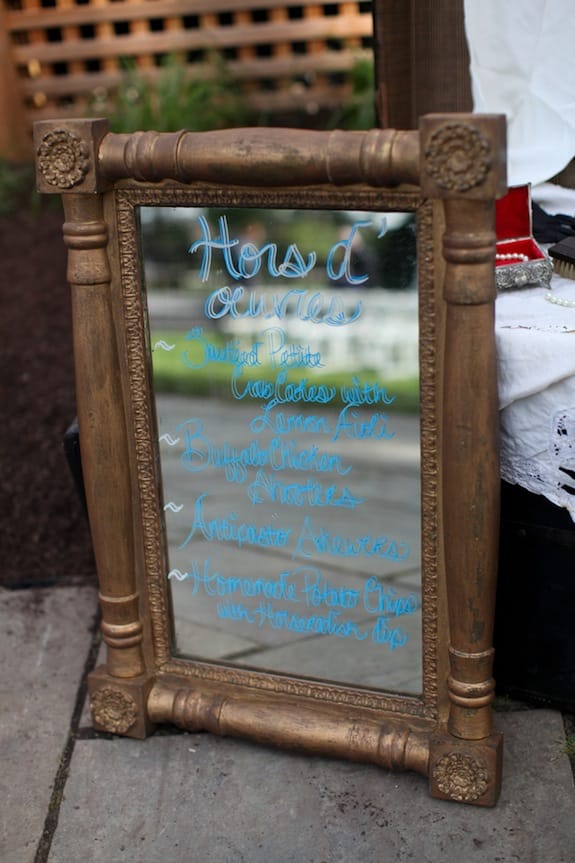 Hors d'
oeuvres
~ Sautéed Petite
Crab Cakes with
Lemon Aioli
~ Buffalo Chicken
Shooters
~ Antipasto Skewers
~ Homemade Potato Chips
with Horseradish dip